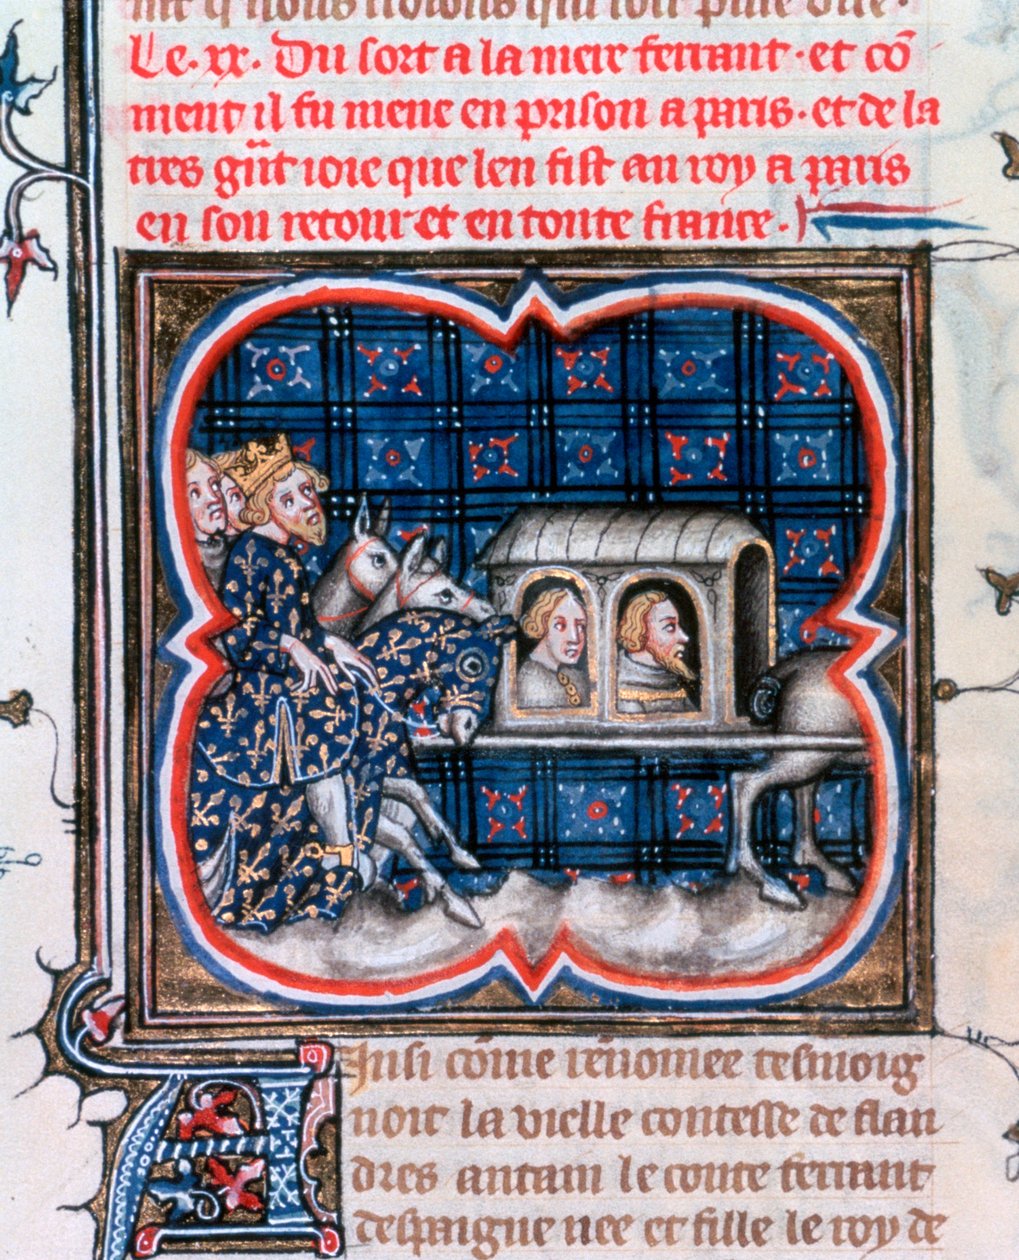 nit q̃ nous trouons qui soit puie dite.
Le .xx. Du sort a la mere ferrant. et cõ
ment il fu mene en prison a paris. et de la
tres gñt ioie que len fist au roy a paris
en son retour et en toute france.
Ainsi cõme rẽnomee tesmoig
noit la vielle contesse de flan
dres antain le conte ferrant
despaigne nee et fille le roy de